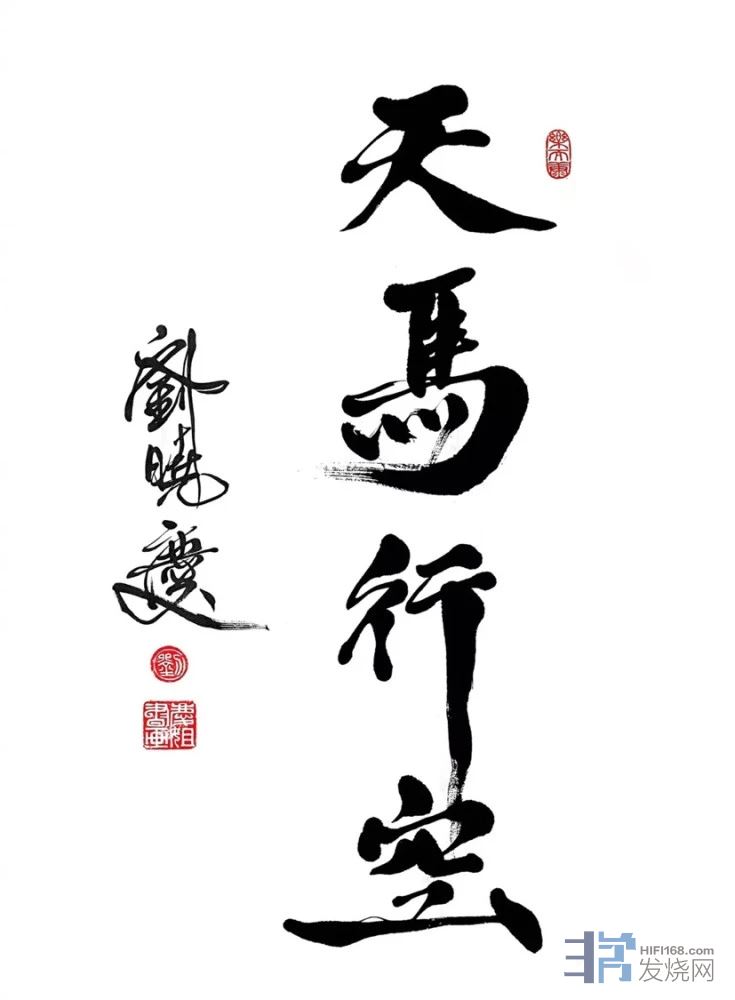 天馬行空
劉曉慶
劉
慶姐書畫
HIFI168.com
发烧网